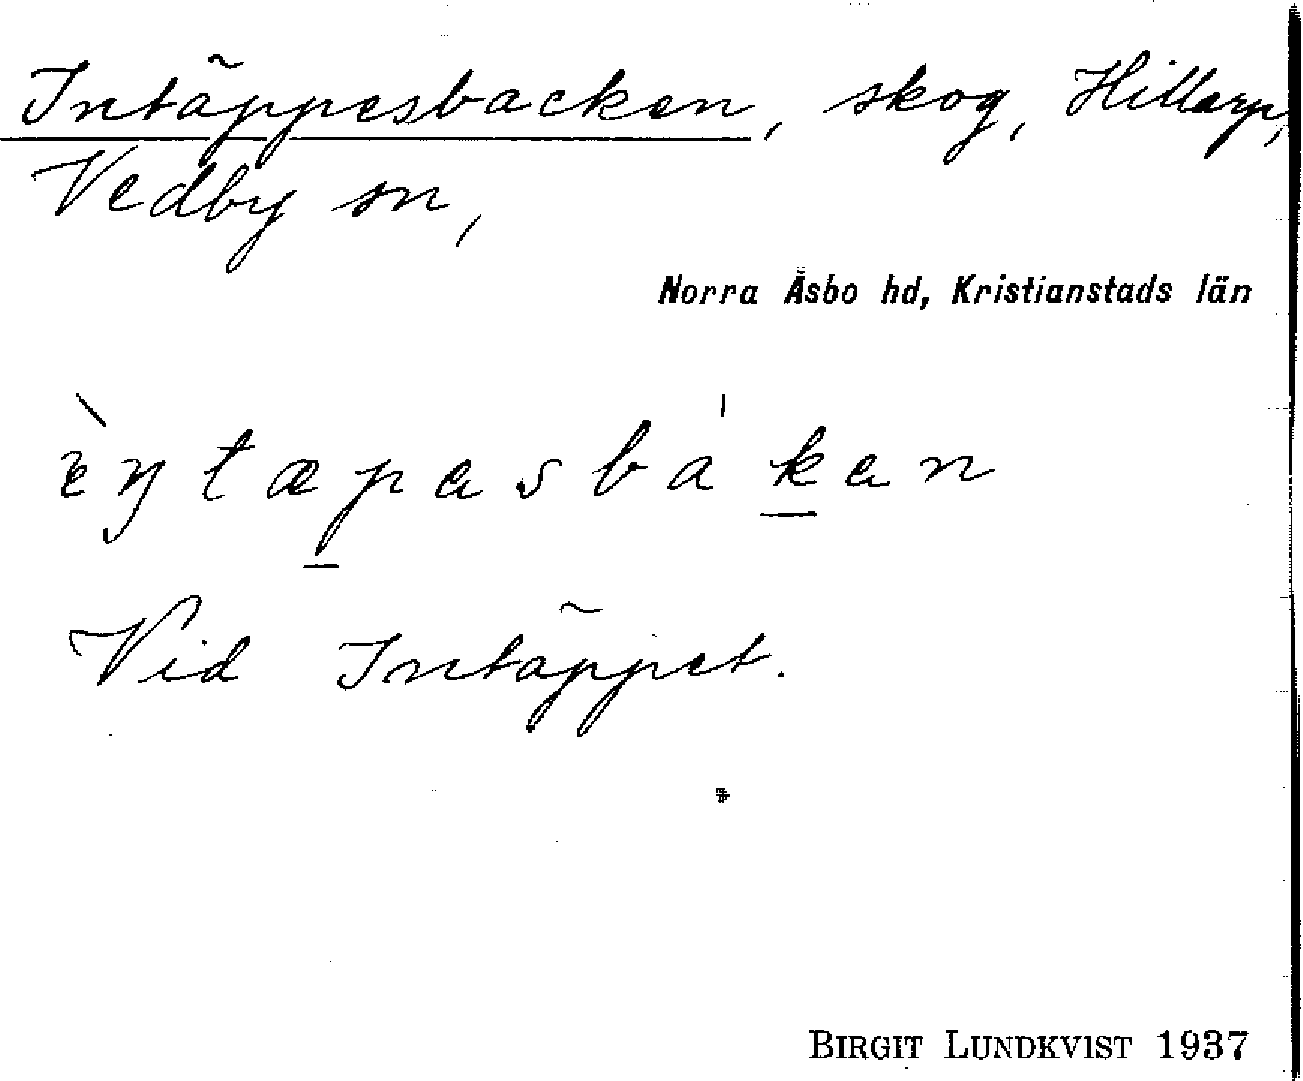 Intäppesbacken, skog, Hillarp,
Vedby sn,
Norra Åsbo hd, Kristianstads län
Vid Intäppet.
BIRGIT LUNDKVIST 1937